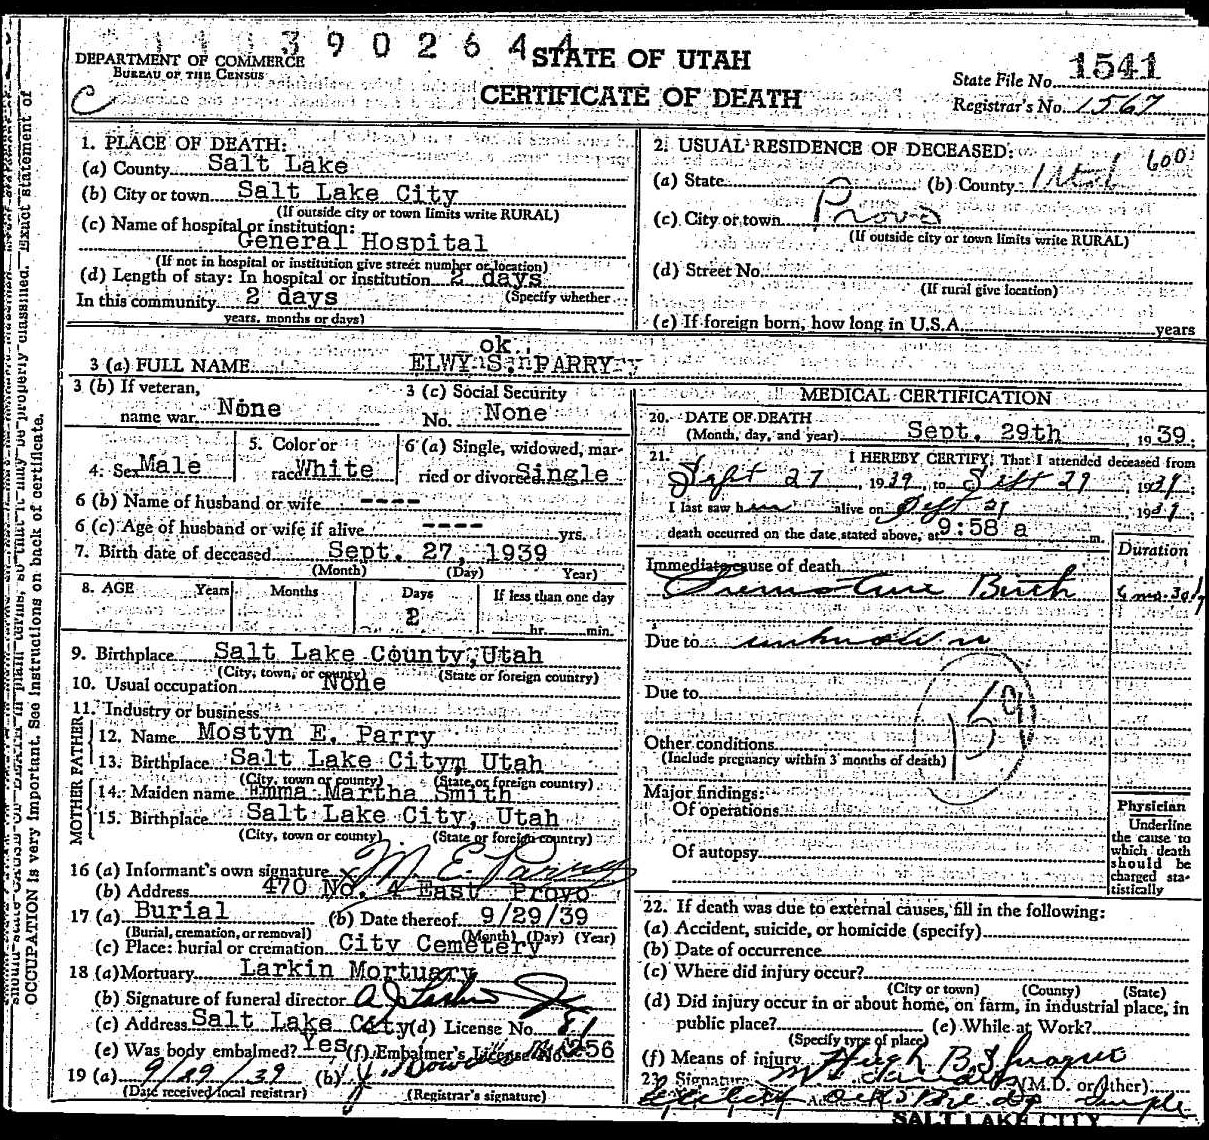 1 1 1 3 9 0 2 6 4 4
DEPARTMENT OF COMMERCE
BUREAU OF THE CENSUS
C
STATE OF UTAH
CERTIFICATE OF DEATH
State File No. 1541
Registrar's No. 1567
1. PLACE OF DEATH:
(a) County Salt Lake
(b) City or town Salt Lake City
(If outside city or town limits write RURAL)
(c) Name of hospital or institution:
General Hospital
(If not in hospital or institution give street number or location)
(d) Length of stay: In hospital or institution 2 days
In this community 2 days (Specify whether
years, months or days)
2. USUAL RESIDENCE OF DECEASED:
600
(a) State (b) County Utah
(c) City or town Provo
(If outside city or town limits write RURAL)
(d) Street No.
(If rural give location)
(e) If foreign born, how long in U.S.A. years
ok
3 (a) FULL NAME ELWYN S. PARRY
3 (b) If veteran,
name war None
3 (c) Social Security
No. None
4. Sex Male
5. Color or
race White
6 (a) Single, widowed, mar-
ried or divorced Single
6 (b) Name of husband or wife ----
6 (c) Age of husband or wife if alive ---- yrs.
7. Birth date of deceased Sept. 27, 1939
(Month) (Day) Year)
8. AGE Years Months Days If less than one day
2 hr. min.
9. Birthplace Salt Lake County, Utah
(City, town, or county) (State or foreign country)
10. Usual occupation None
11. Industry or business
FATHER
12. Name Mostyn E. Parry
13. Birthplace Salt Lake City, Utah
(City, town or county) (State or foreign country)
MOTHER
14. Maiden name Emma Martha Smith
15. Birthplace Salt Lake City, Utah
(City, town or county) (State or foreign country)
16 (a) Informant's own signature x M. E. Parry
(b) Address 470 No. 4 East Provo
17 (a) Burial (b) Date thereof 9/29/39
(Burial, cremation, or removal) (Month) (Day) (Year)
(c) Place: burial or cremation City Cemetery
18 (a) Mortuary Larkin Mortuary
(b) Signature of funeral director A J Larkin Jr
(c) Address Salt Lake City (d) License No. 81
(e) Was body embalmed? Yes (f) Embalmer's License No. 256
19 (a) 9/29/39 (b)
(Date received local registrar) (Registrar's signature)
MEDICAL CERTIFICATION
20. DATE OF DEATH
(Month, day, and year) Sept. 29th, 1939
21. I HEREBY CERTIFY, That I attended deceased from
Sept 27, 1939, to Sept 29, 1939;
I last saw him alive on Sept 29, 1939;
death occurred on the date stated above, at 9:58 a m.
Duration
Immediate cause of death
Premature Birth 6 mo. 30
Due to unknown
Due to
159
Other conditions
(Include pregnancy within 3 months of death)
Major findings:
Of operations
Of autopsy
Physician
Underline
the cause to
which death
should be
charged sta-
tistically
22. If death was due to external causes, fill in the following:
(a) Accident, suicide, or homicide (specify)
(b) Date of occurrence
(c) Where did injury occur?
(City or town) (County) (State)
(d) Did injury occur in or about home, on farm, in industrial place, in
public place? (e) While at Work?
(Specify type of place)
(f) Means of injury Hugh B
23. Signature (M.D. or other)
Temple
SALT LAKE CITY
OCCUPATION is very important. See instructions on back of certificate.